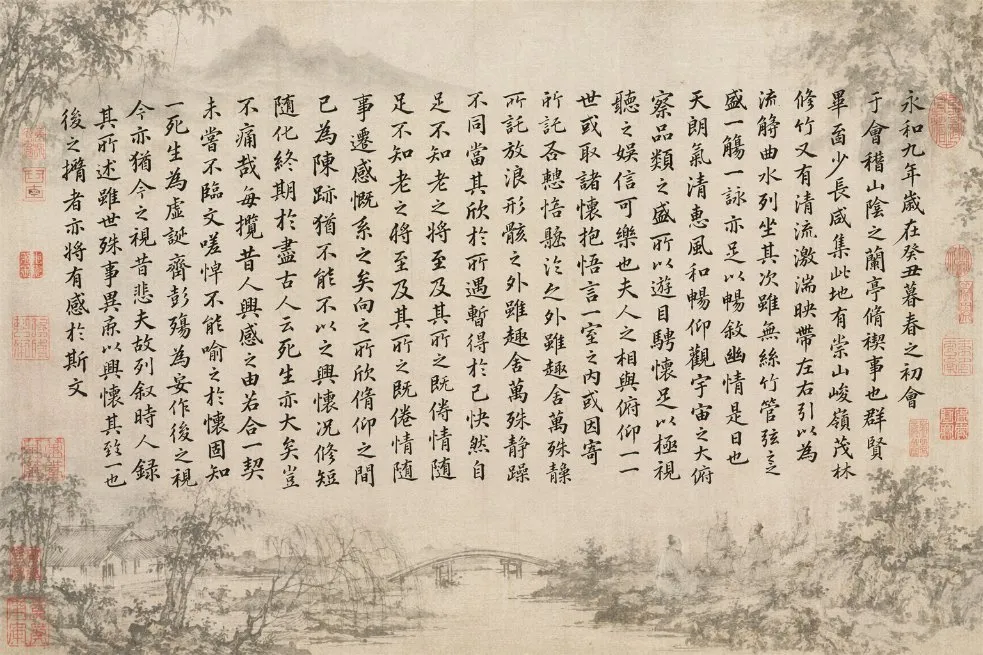 永和九年歲在癸丑暮春之初會
于會稽山陰之蘭亭脩禊事也群賢
畢面少長咸集此地有崇山峻嶺茂林
修竹又有清流激湍映帶左右引以為
流觴曲水列坐其次雖無絲竹管弦之
盛一觴一詠亦足以暢敘幽情是日也
天朗氣清惠風和暢仰觀宇宙之大俯
察品類之盛所以遊目騁懷足以極視
聽之娛信可樂也夫人之相與俯仰一一
世或取諸懷抱悟言一室之內或因寄
所託悟之外雖趣舍萬殊靜
所託放浪形骸之外雖趣舍萬殊靜躁
不同當其欣於所遇暫得於己快然自
足不知老之將至及其所之既倦情隨
足不知老之將至及其所之既倦情隨
事遷感慨系之矣向之所欣俯仰之間
已為陳跡猶不能不以之興懷況修短
隨化終期於盡古人云死生亦大矣豈
不痛哉每攬昔人興感之由若合一契
未嘗不臨文嗟悼不能喻之於懷固知
一死生為虛誕齊彭殤為妄作後之視
今亦猶今之視昔悲夫故列叙時人録
其所述雖世殊事異以興懷其致一也
後之攬者亦將有感於斯文